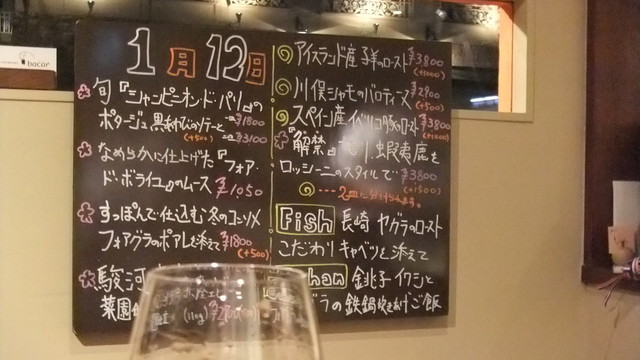 bacar
1月12日
旬『シャンピニオン・ド・パリ』の
ポタージュ 黒あわびのソテーと ¥1800
(+500) ¥3100
なめらかに仕上げた『フォア・
ド・ボライユ』のムース ¥1050
すっぽんで仕込む 冬のコンソメ
フォアグラのポアレを添えて ¥1800
(+500)
駿河
菜園
アイスランド産 子羊のロースト ¥3800
(+1000)
川俣シャモのバロティーヌ ¥2900
(+500)
スペイン産 イベリコ豚のロースト ¥3800
(+1000)
『解禁』 蝦夷鹿を
ロッシーニのスタイルで ¥3800
(+1500)
2皿に分けます。
Fish 長崎 ヤグラのロースト
こだわり キャベツを添えて
han 銚子 イワシと
ラの 鉄鍋炊きあげご飯
(110g)